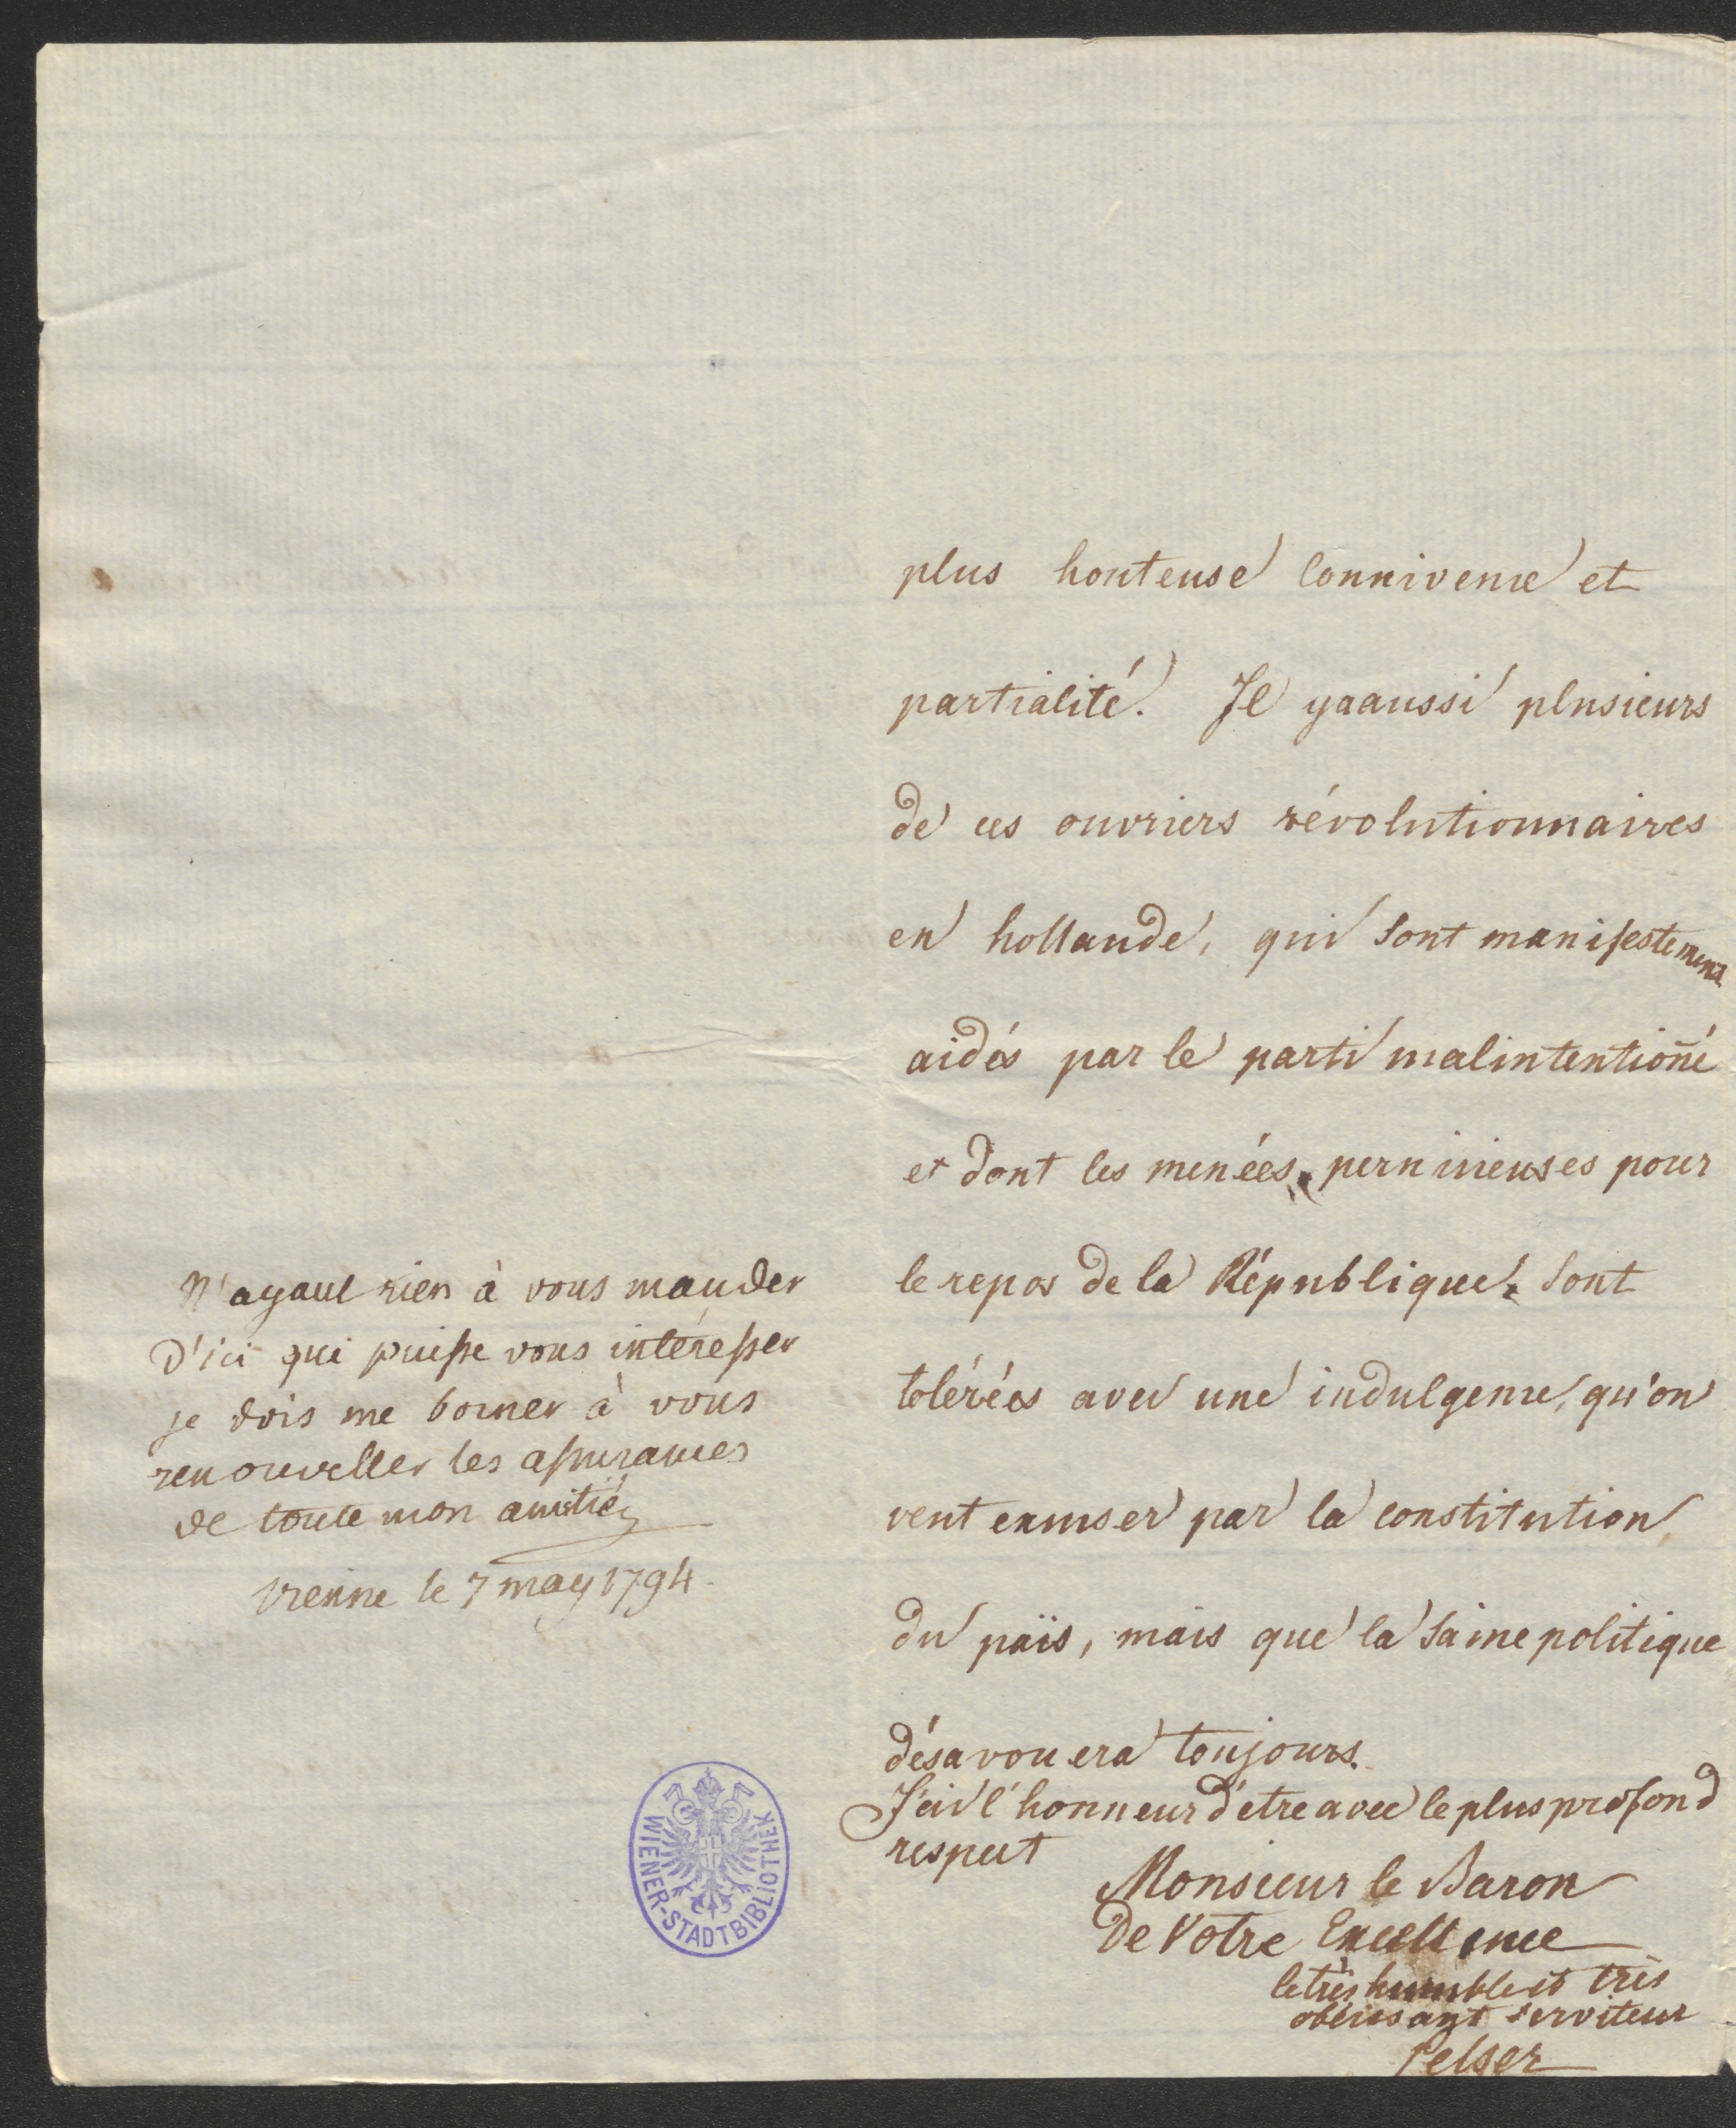 plus honteuse connivence et
partialité. Il yaaussi plusieurs
de ces ouvriers révolutionnaires
en hollande, qui sont manifestement
aidés par le parti malintentioñé
et dont les menées, pernicieuses pour
le repos de la République, sont
tolérées avec une indulgence, qu'on
veut excuser par la constitution
du païs, mais que la saine politique
désavouera toujours.
J'ai l'honneur d'etre avec le plus profond
respect
Monsieur le Baron
De Votre Excellence
le très humble et très
obéissant serviteur
Pelser
N'ayant rien à vous mander
d'ici qui puisse vous intéresser
je dois me borner à vous
renouveller les assurances
de toute mon amitié
Vienne le 7 may 1794.
WIENER-STADTBIBLIOTHEK